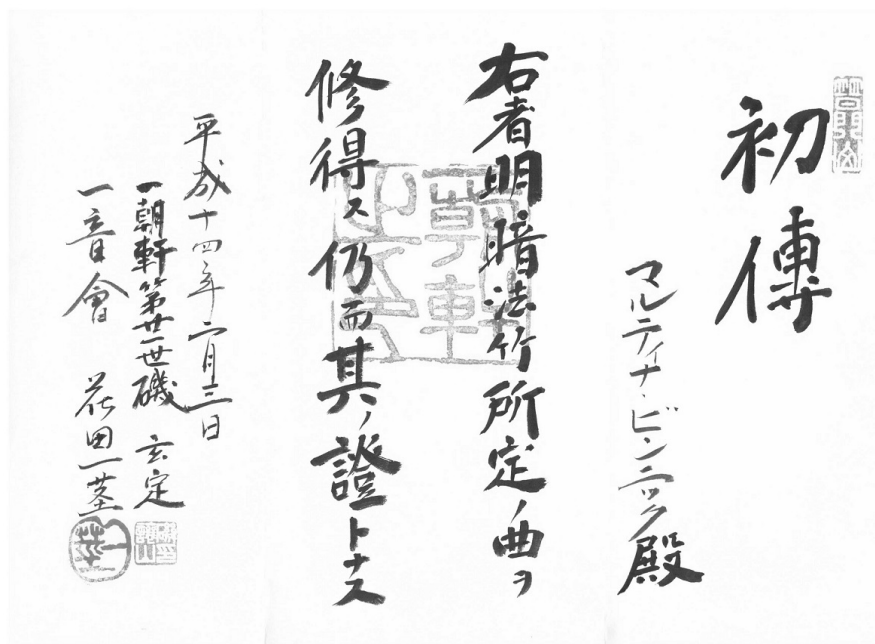 初傳
マルティナ・ビンニック殿
右者明暗法竹所定ノ曲ヲ
修得ス仍而其ノ證トナス
平成十四年二月三日
一朝軒第廿一世磯 玄定
一音會 花田一茎